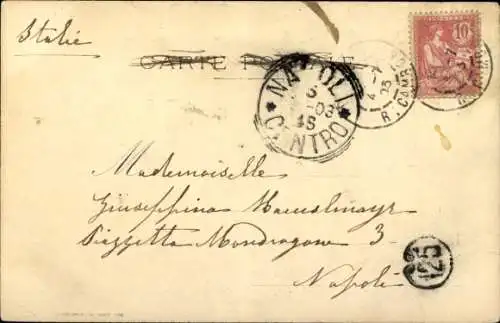 Italie
CARTE POSTALE
10
NAPOLI
CENTRO
R. CAMB
Mademoiselle
Giuseppina Haeuslmayr
Piazzetta Mondragone 3
Napoli
125